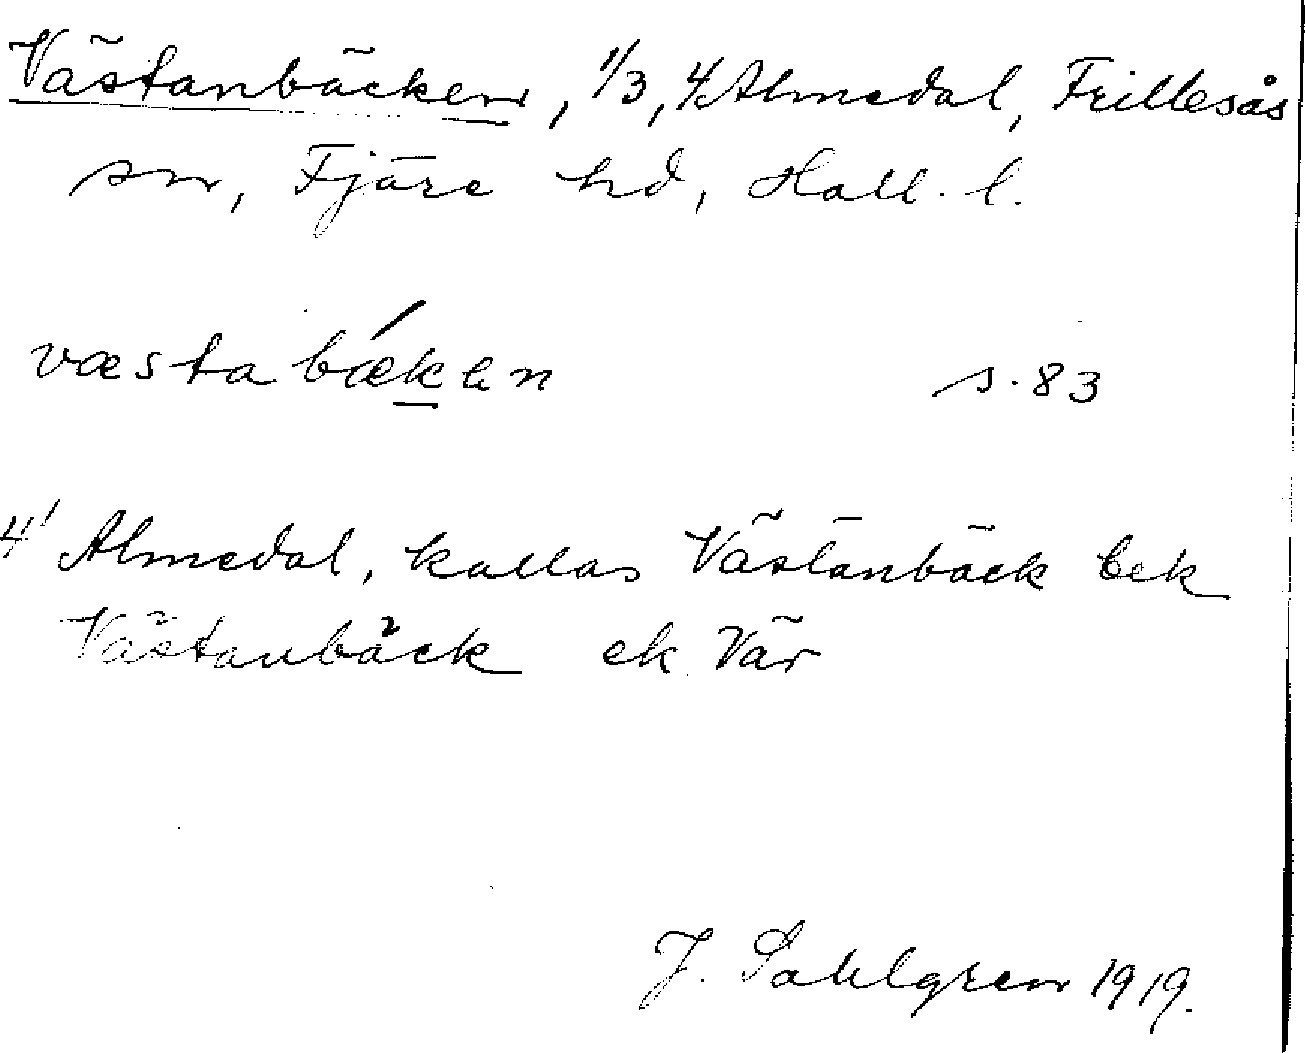 Västanbäcken, 1/3, 4/ Almedal, Frillesås
sn, Fjäre hd, Hall. l.
væstabǽken s. 83
4' Almedal, kallas Västanbäck bek
Västanbäck ek Vär
J. Sahlgren 1919.